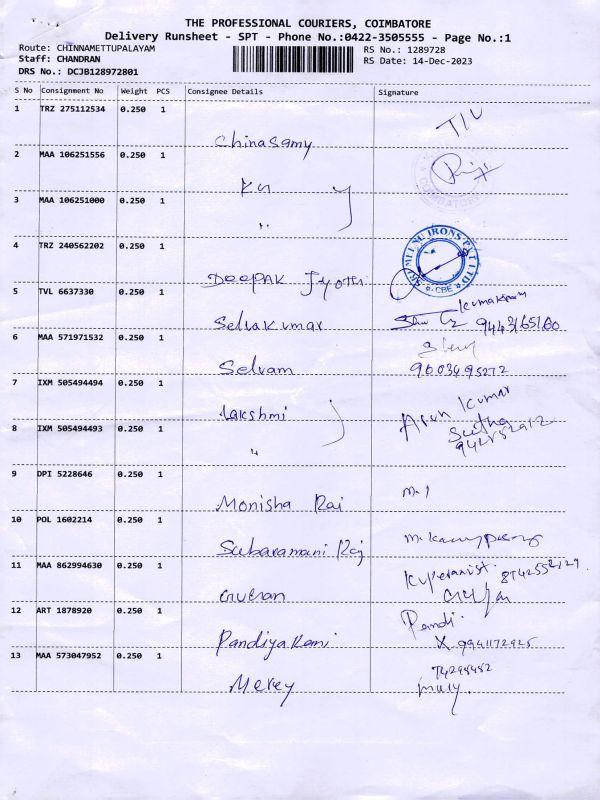 THE PROFESSIONAL COURIERS, COIMBATORE
Delivery Runsheet - SPT - Phone No.:0422-3505555 - Page No.:1
Route: CHINNAMETTUPALAYAM
RS No.: 1289728
Staff: CHANDRAN
RS Date: 14-Dec-2023
DRS No.: DCJB128972801
S No Consignment No Weight PCS Consignee Details Signature
1 TRZ 275112534 0.250 1
Chinasamy
2 MAA 106251556 0.250 1
3 MAA 106251000 0.250 1
"
4 TRZ 240562202 0.250 1
DEEPAK Jyothi
CBE
5 TVL 6637330 0.250 1
Selvakumar 9443165160
6 MAA 571971532 0.250 1
Selvam 9003495272
7 IXM 505494494 0.250 1
Lakshmi Arun Kumar
8 IXM 505494493 0.250 1
"
9 DPI 5228646 0.250 1
Monisha Rai
10 POL 1602214 0.250 1
Subaramani Raj
11 MAA 862994630 0.250 1
12 ART 1878920 0.250 1
Pandi
Pandiya Rani
13 MAA 573047952 0.250 1
Mercy